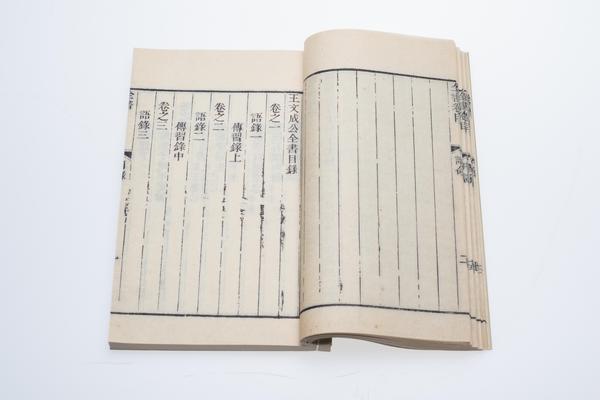 王文成公全書目錄
卷之一
語錄一
傳習錄上
卷之二
語錄二
傳習錄中
卷之三
語錄三